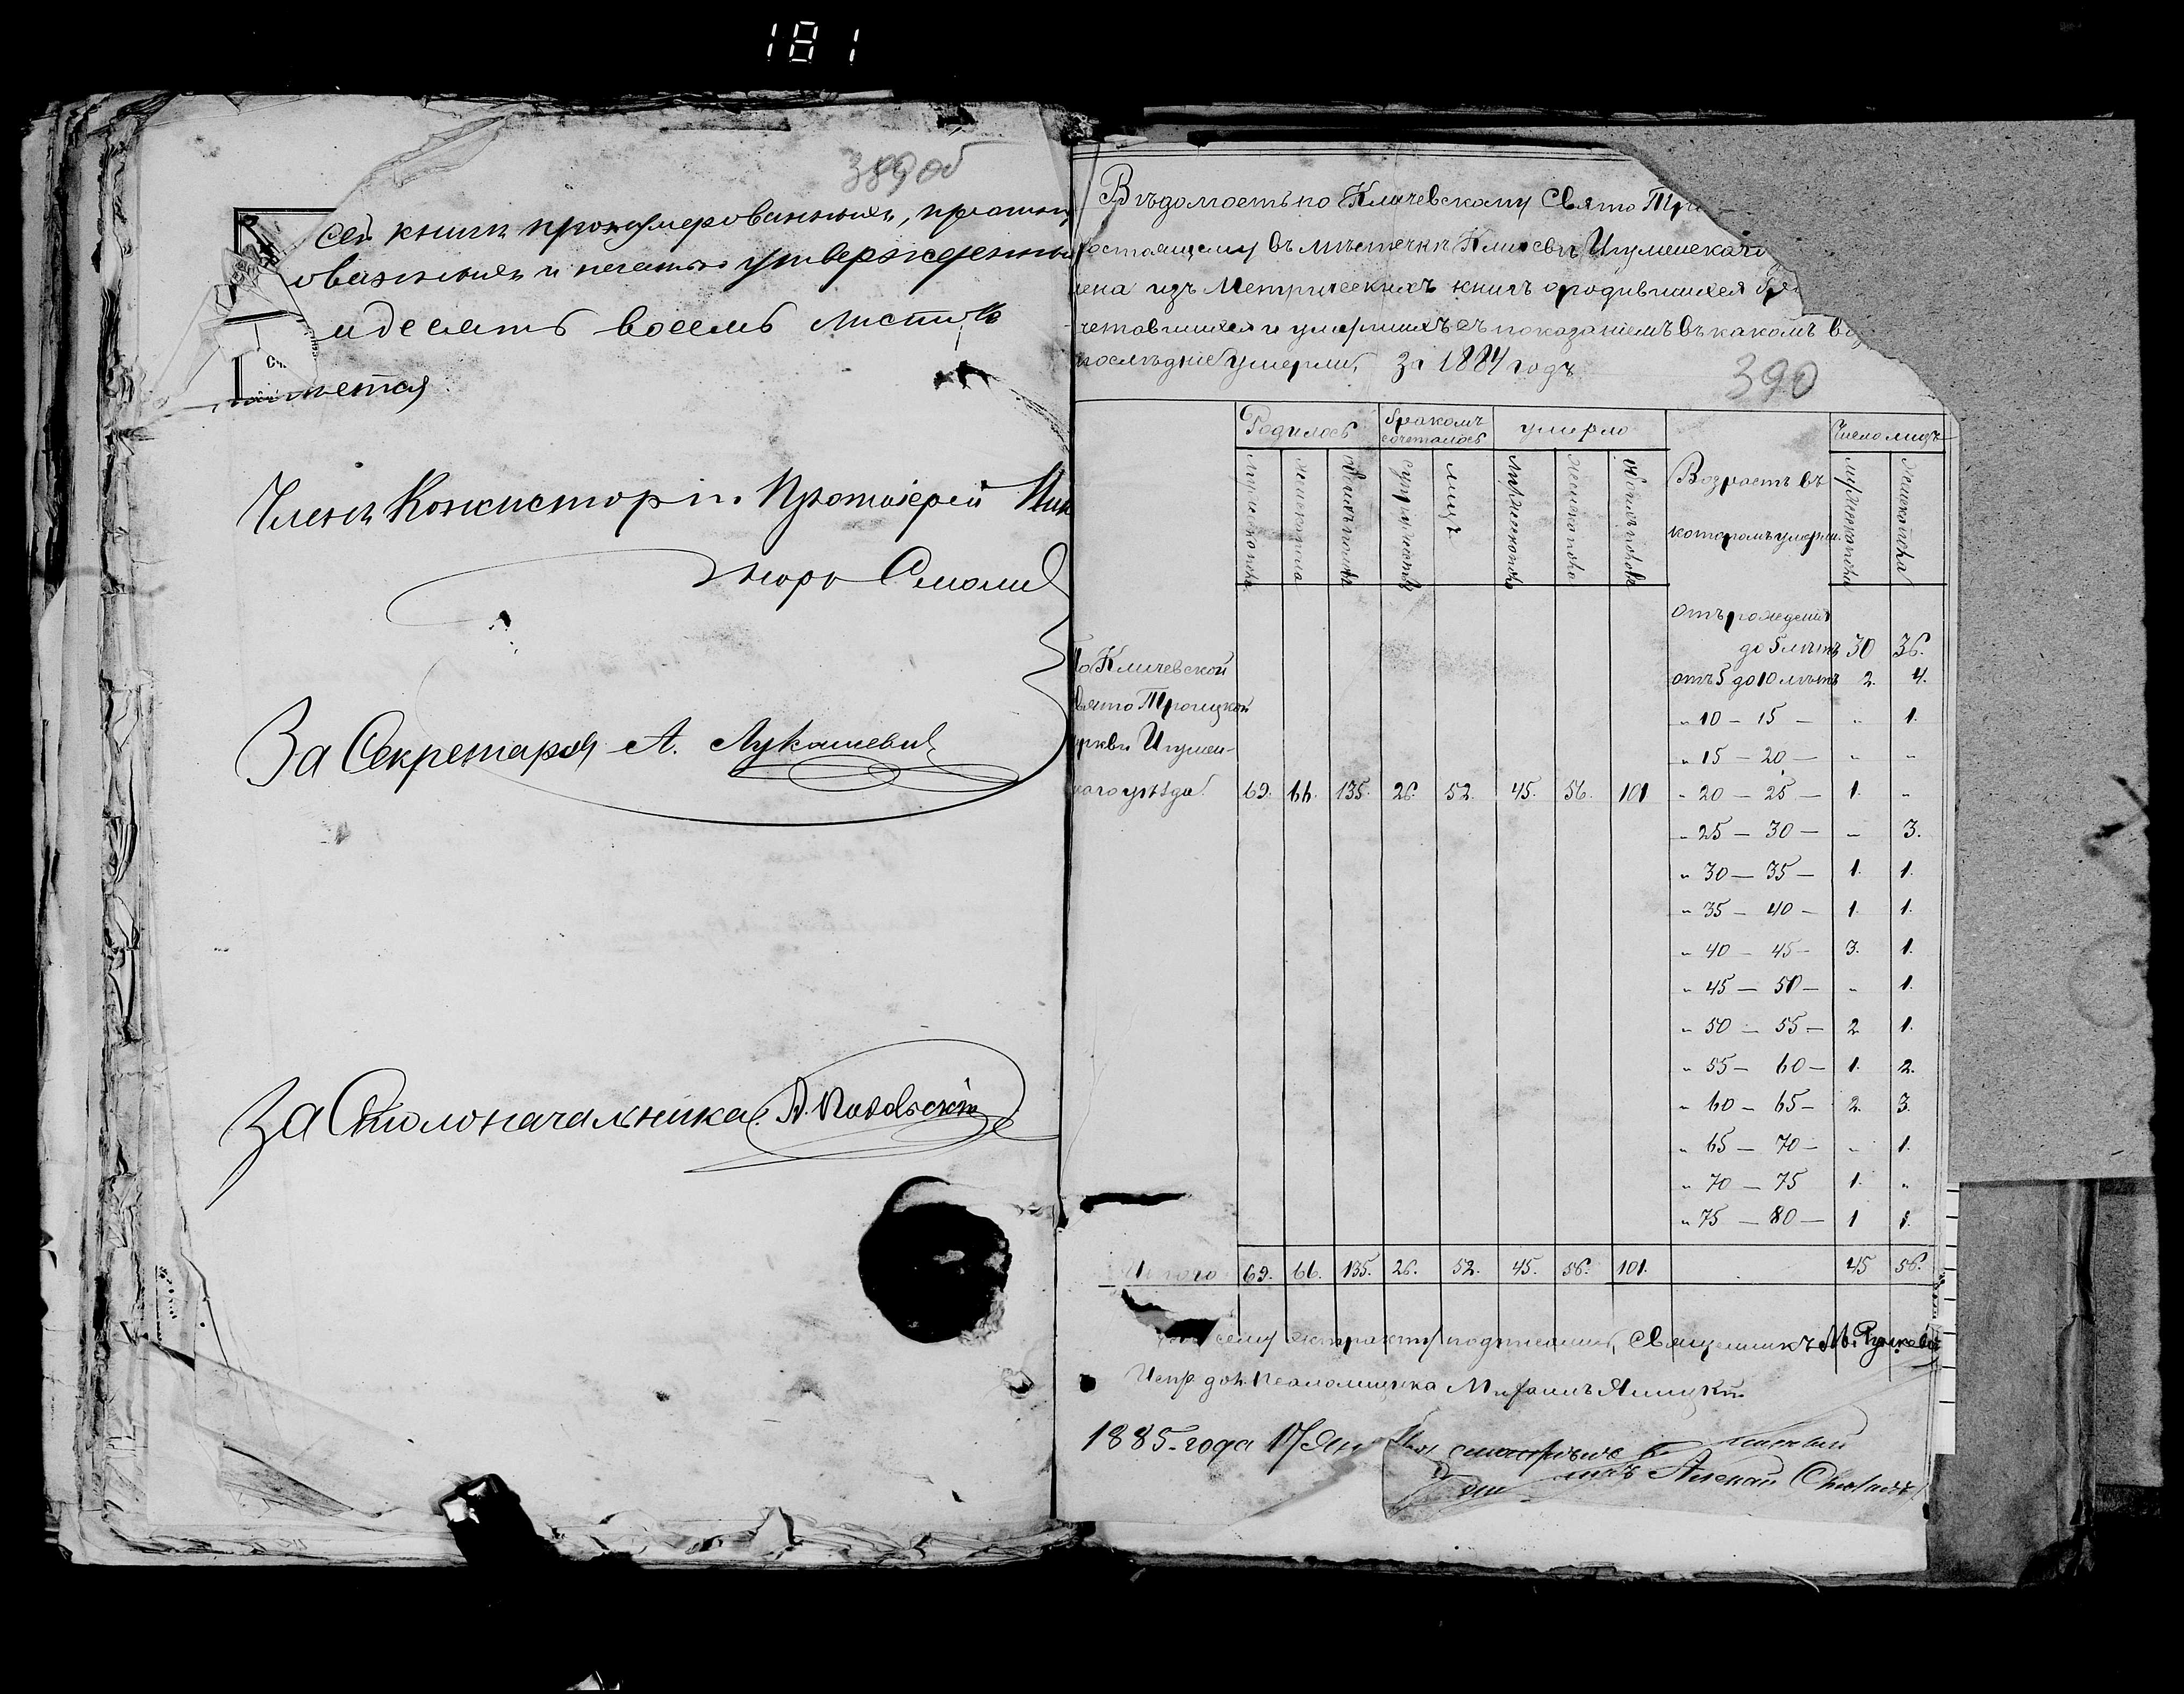 181
389 об
Сей книги пронумерованныхъ, прошну
ованныхъ и печатью утвержденны
идесять восемь листовъ
Членъ Консисторіи Протоіерей
За Секретаря А. Лукашевичъ
За Столоначальника
Вѣдомость по Кличевскому Свято Тро
состоящему въ мѣстечкѣ Кличевѣ Игуменскаго
лена изъ Метрическихъ книгъ о родившихся бра
четавшихся и умершихъ съ показаніемъ въ какомъ воз
послѣдніе умерли, за 1884 годъ
390
Родилось бракомъ сочеталось умерло Возрастъ въ которомъ умерли Число лицъ
мужеска пола женска пола обоихъ половъ супружествъ лицъ мужеска пола женска пола обоихъ половъ мужеска пола женска пола
отъ рожденія
до 5 лѣтъ 30 36.
отъ 5 до 10 лѣтъ 2. 4.
„ 10 — 15 — „ 1.
„ 15 — 20 — „ „
По Кличевской
Свято Троицкой
церкви Игумен-
скаго уѣзда. 69. 66. 135. 26. 52. 45. 56. 101 „ 20 — 25 — 1. „
„ 25 — 30 — „ 3.
„ 30 — 35 — 1. 1.
„ 35 — 40 — 1. 1.
„ 40 — 45 — 3. 1.
„ 45 — 50 — „ 1.
„ 50 — 55 — 2. 1.
„ 55 — 60 — 1. 2.
„ 60 — 65 — 2. 3.
„ 65 — 70 — „ 1.
„ 70 — 75 1. „
„ 75 — 80 — 1 1.
Итого 69. 66. 135. 26. 52. 45. 56. 101. 45 56.
сему экстракту подписались, Священникъ М.
Испр. дол. Псаломщика
1885 года 17 Ян